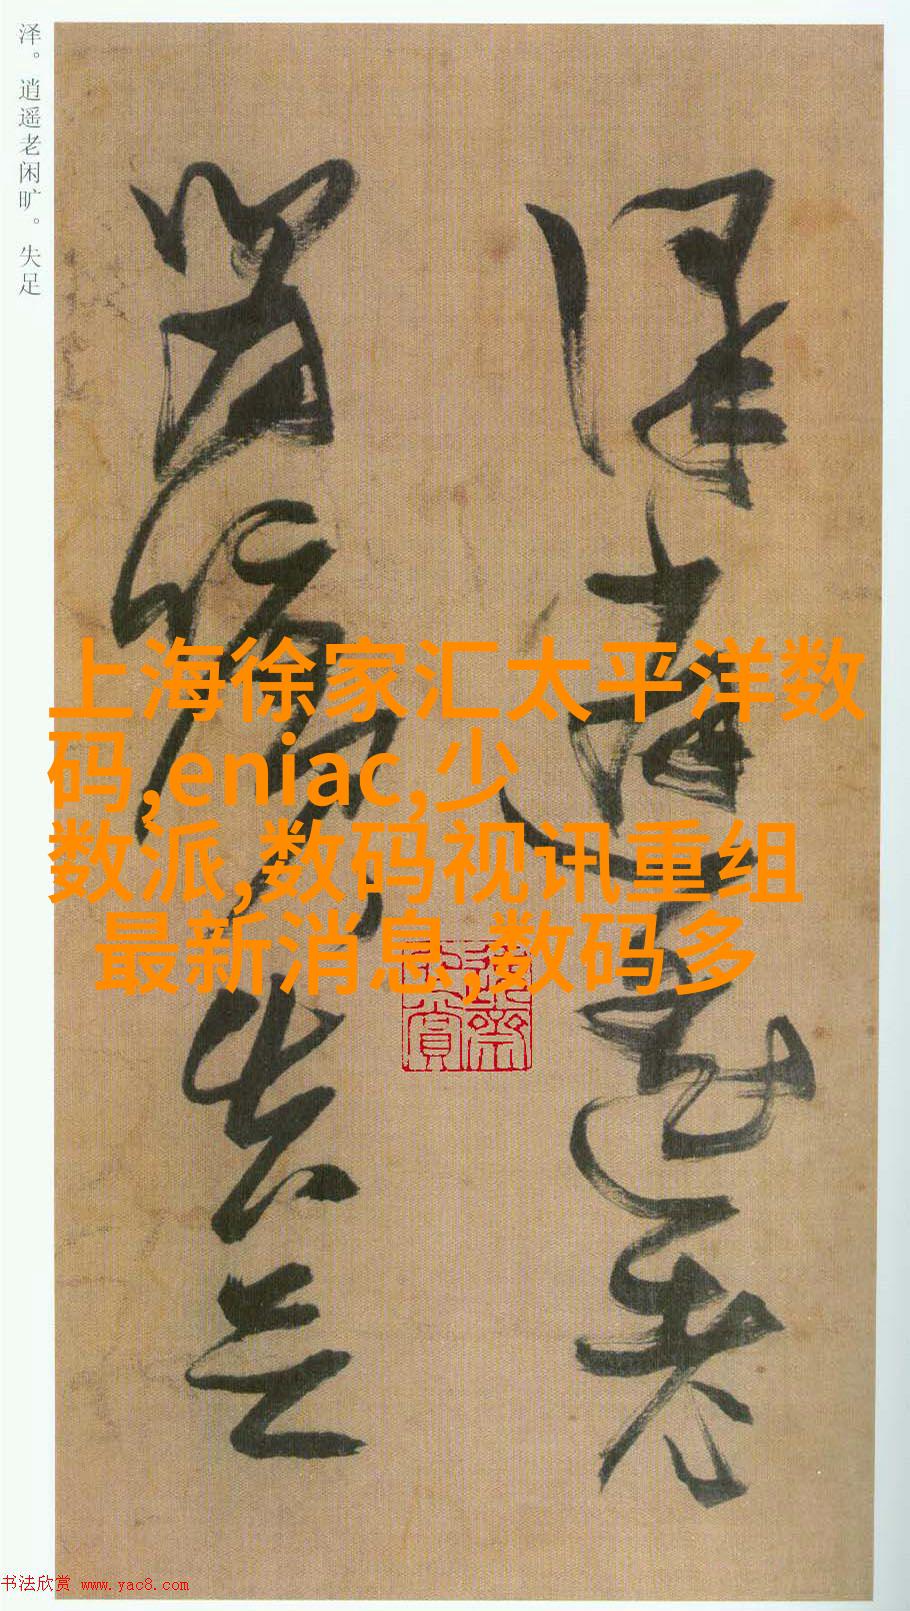 泽。逍遥老闲旷。失足
泽逍遥老
闲旷失足
上海徐家汇太平洋数
码,eniac,少
数派,数码视讯重组
最新消息,数码多
书法欣赏 www.yac8.com